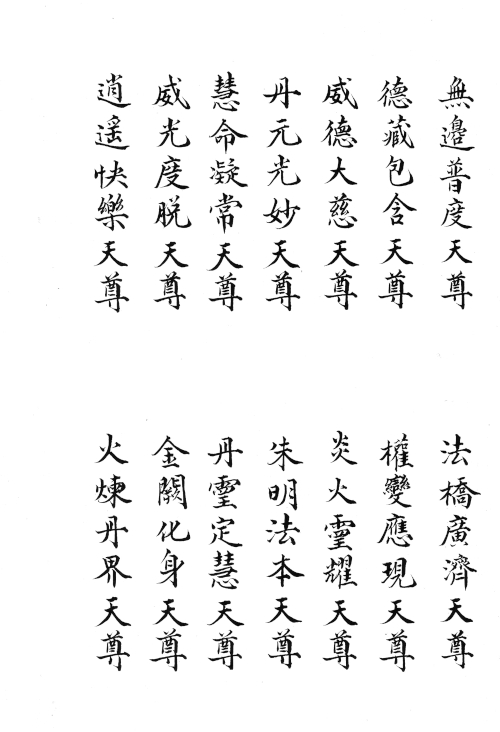 無邊普度天尊
法橋廣濟天尊
德藏包含天尊
權變應現天尊
威德大慈天尊
炎火靈耀天尊
丹元光妙天尊
朱明法本天尊
慧命凝常天尊
丹靈定慧天尊
威光度脫天尊
金闕化身天尊
逍遥快樂天尊
火煉丹界天尊